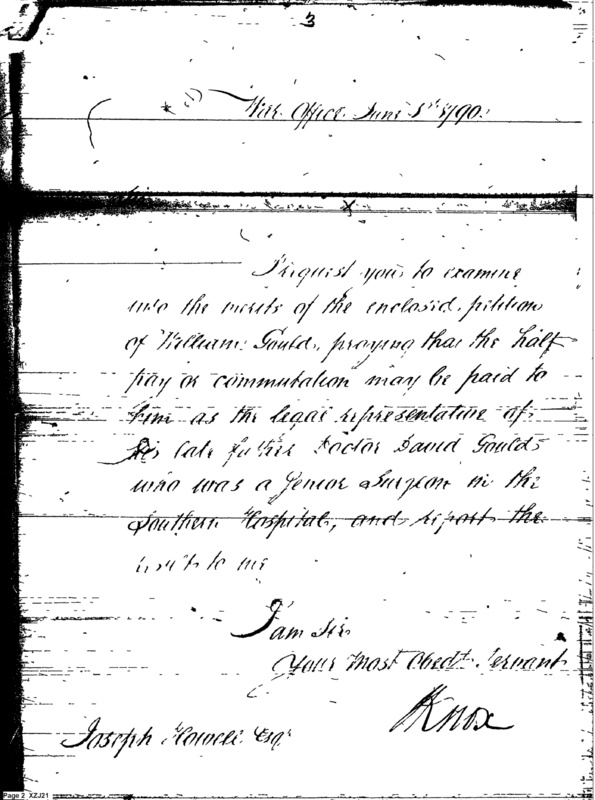 3
War Office June 5th 1790.
Sir
I request you to examine
into the merits of the enclosed petition
of William Gould, praying that the half
pay or commutation may be paid to
him as the legal representative of
his late father Doctor David Gould
who was a Senior Surgeon in the
Southern Hospital, and report the
result to me
I am Sir
Your Most Obedt. Servant
HKnox
Joseph Howell Esqr
Page 2 XZJ21